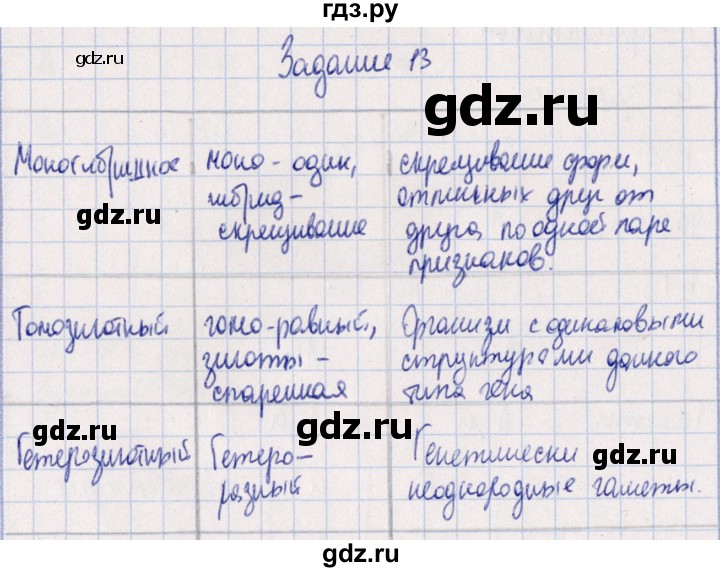 гдз.ру
gdz.ru
Задание 13
gdz.ru
Моногибридное моно - один, скрещивание форм,
gdz.ru гибрид- отличных друг от
скрещивание друга, по одной паре
признаков.
gdz.ru
Гомозиготный гомо-равный, Организм с одинаковыми
зиготы - структурами данного
спаренная типа гена
gdz.ru
Гетерозиготный Гетеро- Генетически
разный неоднородные гаметы.
gdz.ru
gdz.ru
gdz.ru